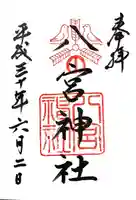 奉拝
八宮神社
平成三十年六月二日